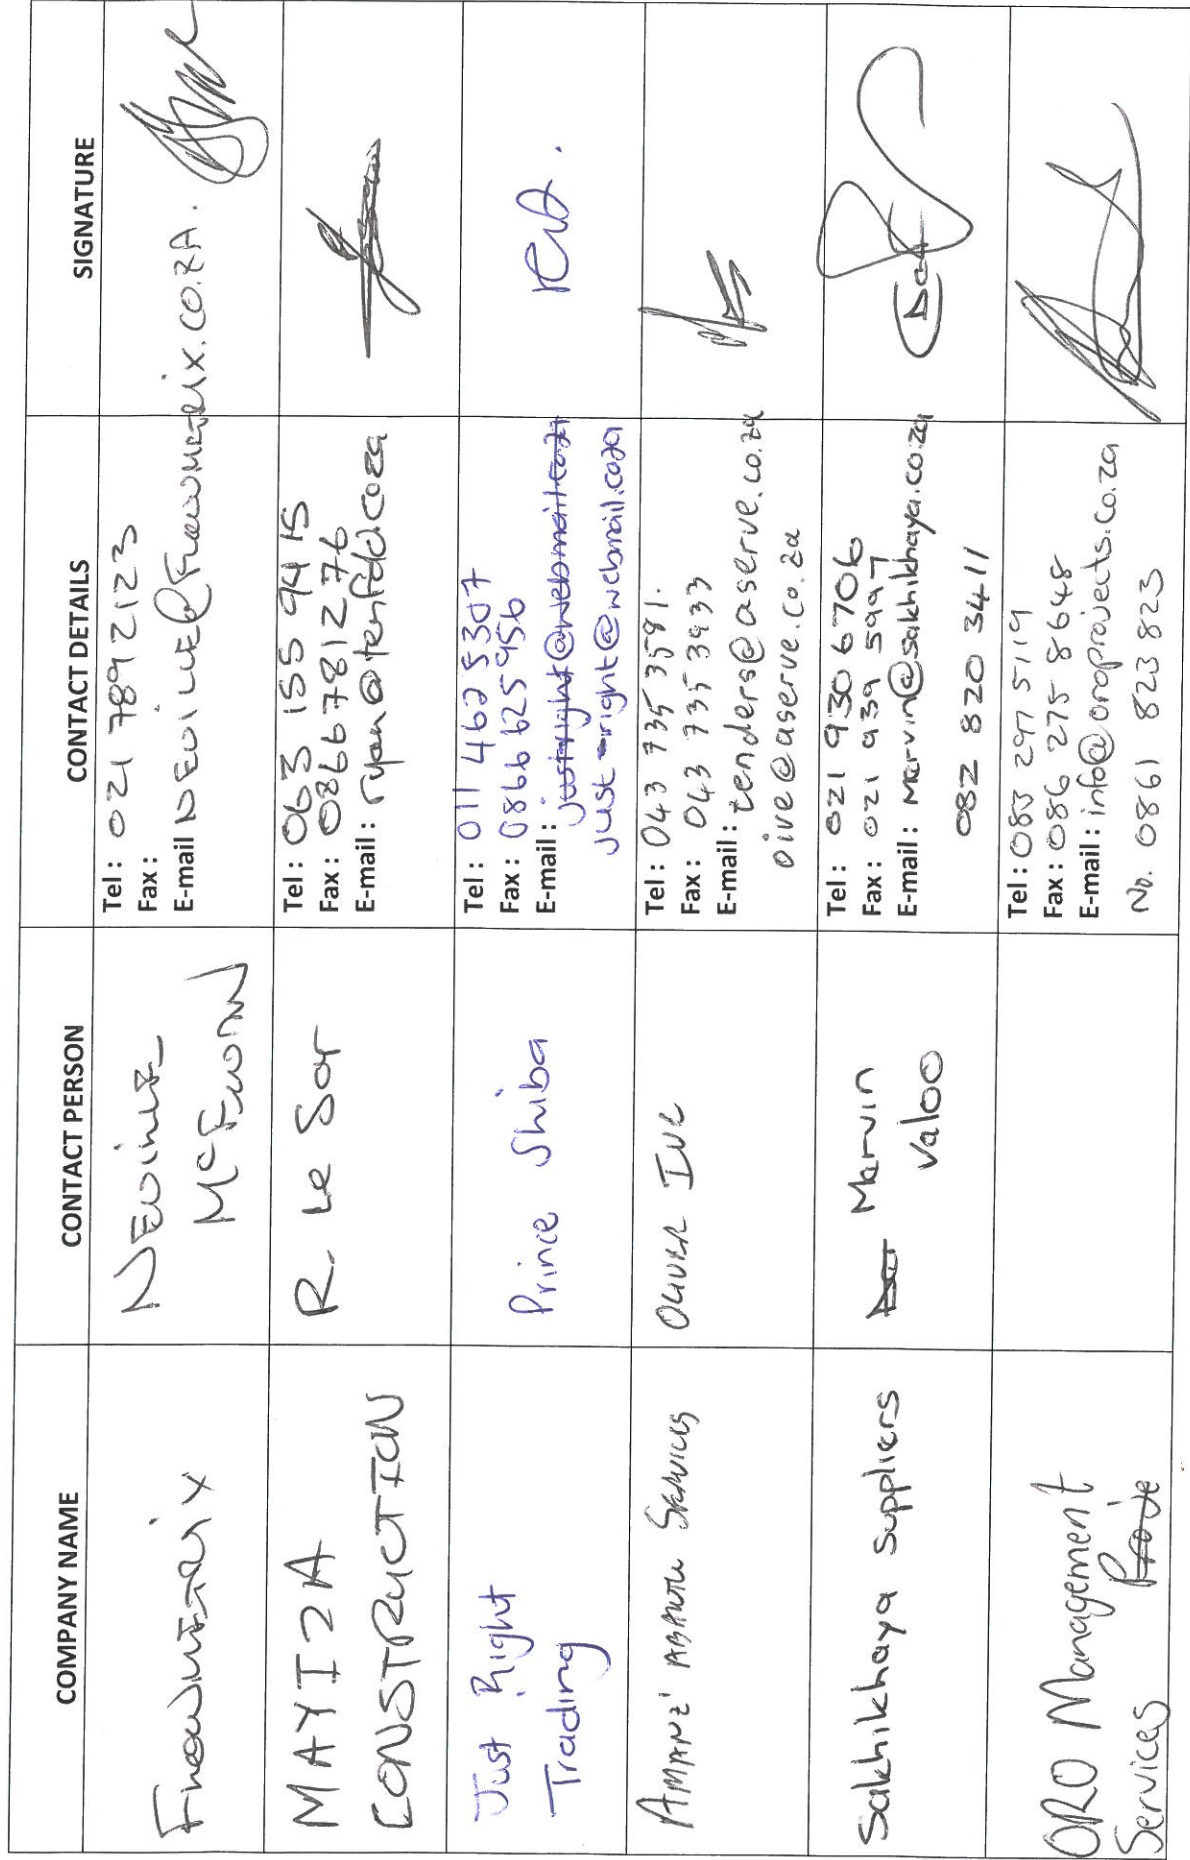 COMPANY NAME
CONTACT PERSON
CONTACT DETAILS
SIGNATURE
Flowmetrix
NEVILLE
McEwan
Tel : 021 789 2123
Fax :
E-mail NEVILLE@Flowmetrix.co.za.
MAYIZA
CONSTRUCTION
R. Le Sar
Tel : 063 155 9415
Fax : 0866781276
E-mail : ryan@tenfdd.coza
Just Right
Trading
Prince Shiba
Tel : 011 462 5307
Fax : 0866 625 956
E-mail : justright@webmail.coza
just-right@webmail.coza
AMANZ' ABANTU SERVICES
OLIVER IVE
Tel : 043 735 3581.
Fax : 043 735 3933
E-mail : tenders@aserve.co.za
oive@aserve.co.za
Sakhikhaya Suppliers
Marvin
Valoo
Tel : 021 930 6706
Fax : 021 939 5997
E-mail : Marvin@sakhikhaya.co.za
082 820 3411
ORO Management
Services Proje
Tel : 083 297 5119
Fax : 086 275 8648
E-mail : info@oroprojects.co.za
No. 0861 823 823